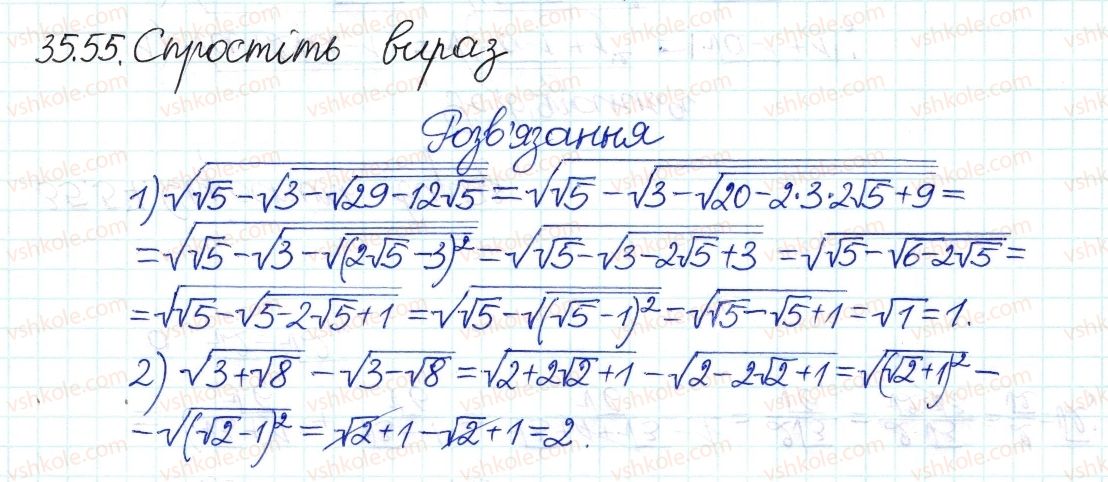 35.55. Спростіть вираз
Розв'язання
1) √(√5 - √(3 - √(29 - 12√5))) = √(√5 - √(3 - √(20 - 2·3·2√5 + 9))) =
= √(√5 - √(3 - √((2√5 - 3)²))) = √(√5 - √(3 - 2√5 + 3)) = √(√5 - √(6 - 2√5)) =
= √(√5 - √(5 - 2√5 + 1)) = √(√5 - √((√5 - 1)²)) = √(√5 - √5 + 1) = √1 = 1.
2) √(3 + √8) - √(3 - √8) = √(2 + 2√2 + 1) - √(2 - 2√2 + 1) = √((√2 + 1)²) -
- √((√2 - 1)²) = √2 + 1 - √2 + 1 = 2.